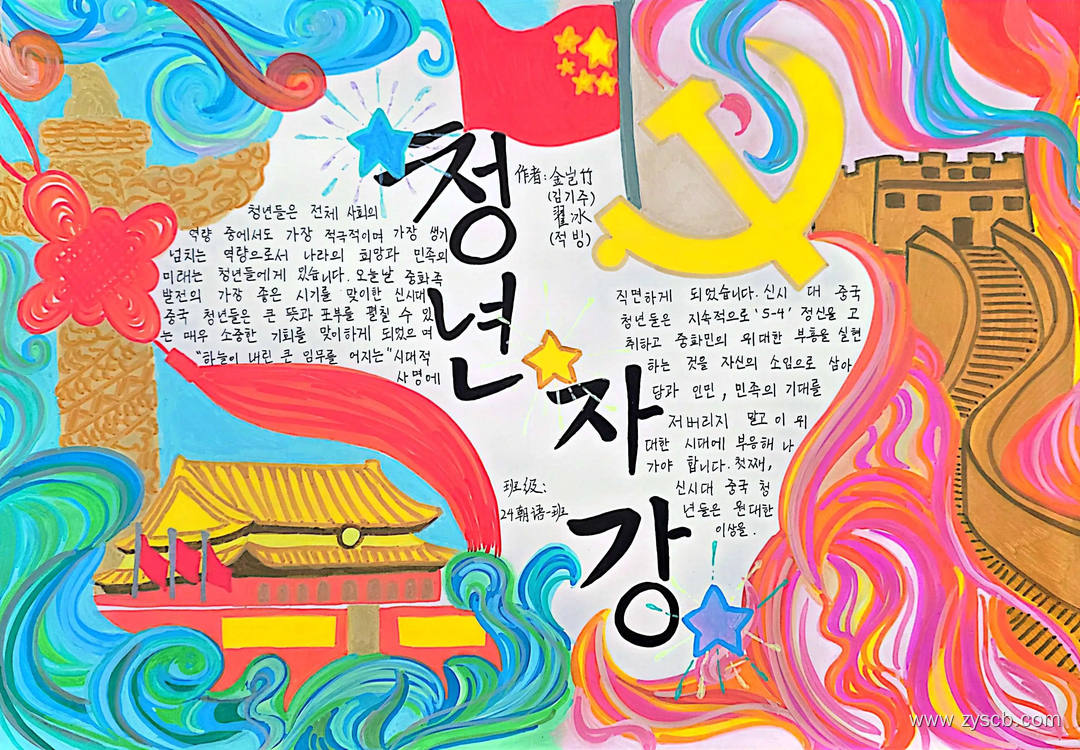 정년자강
作者: 金岂竹
(김기주)
翟冰
(적빙)
청년들은 전체 사회의
역량 중에서도 가장 적극적이며 가장 생기
넘치는 역량으로서 나라의 희망과 민족의
미래는 청년들에게 있습니다. 오늘날 중화족
발전의 가장 좋은 시기를 맞이한 신시대
중국 청년들은 큰 뜻과 포부를 펼칠 수 있
는 매우 소중한 기회를 맞이하게 되었으며
"하늘이 내린 큰 임무를 어지는"시대적
사명에
직면하게 되었습니다. 신시 대 중국
청년들은 지속적으로 '5-4' 정신을 고
취하고 중화민의 위대한 부흥을 실현
하는 것을 자신의 소임으로 삼아
당과 인민, 민족의 기대를
저버리지 말고 이 위
대한 시대에 부응해 나
가야 합니다. 첫째,
신시대 중국 청
년들은 원대한
이상을.
班级:
24朝语-班
www.zyscb.com